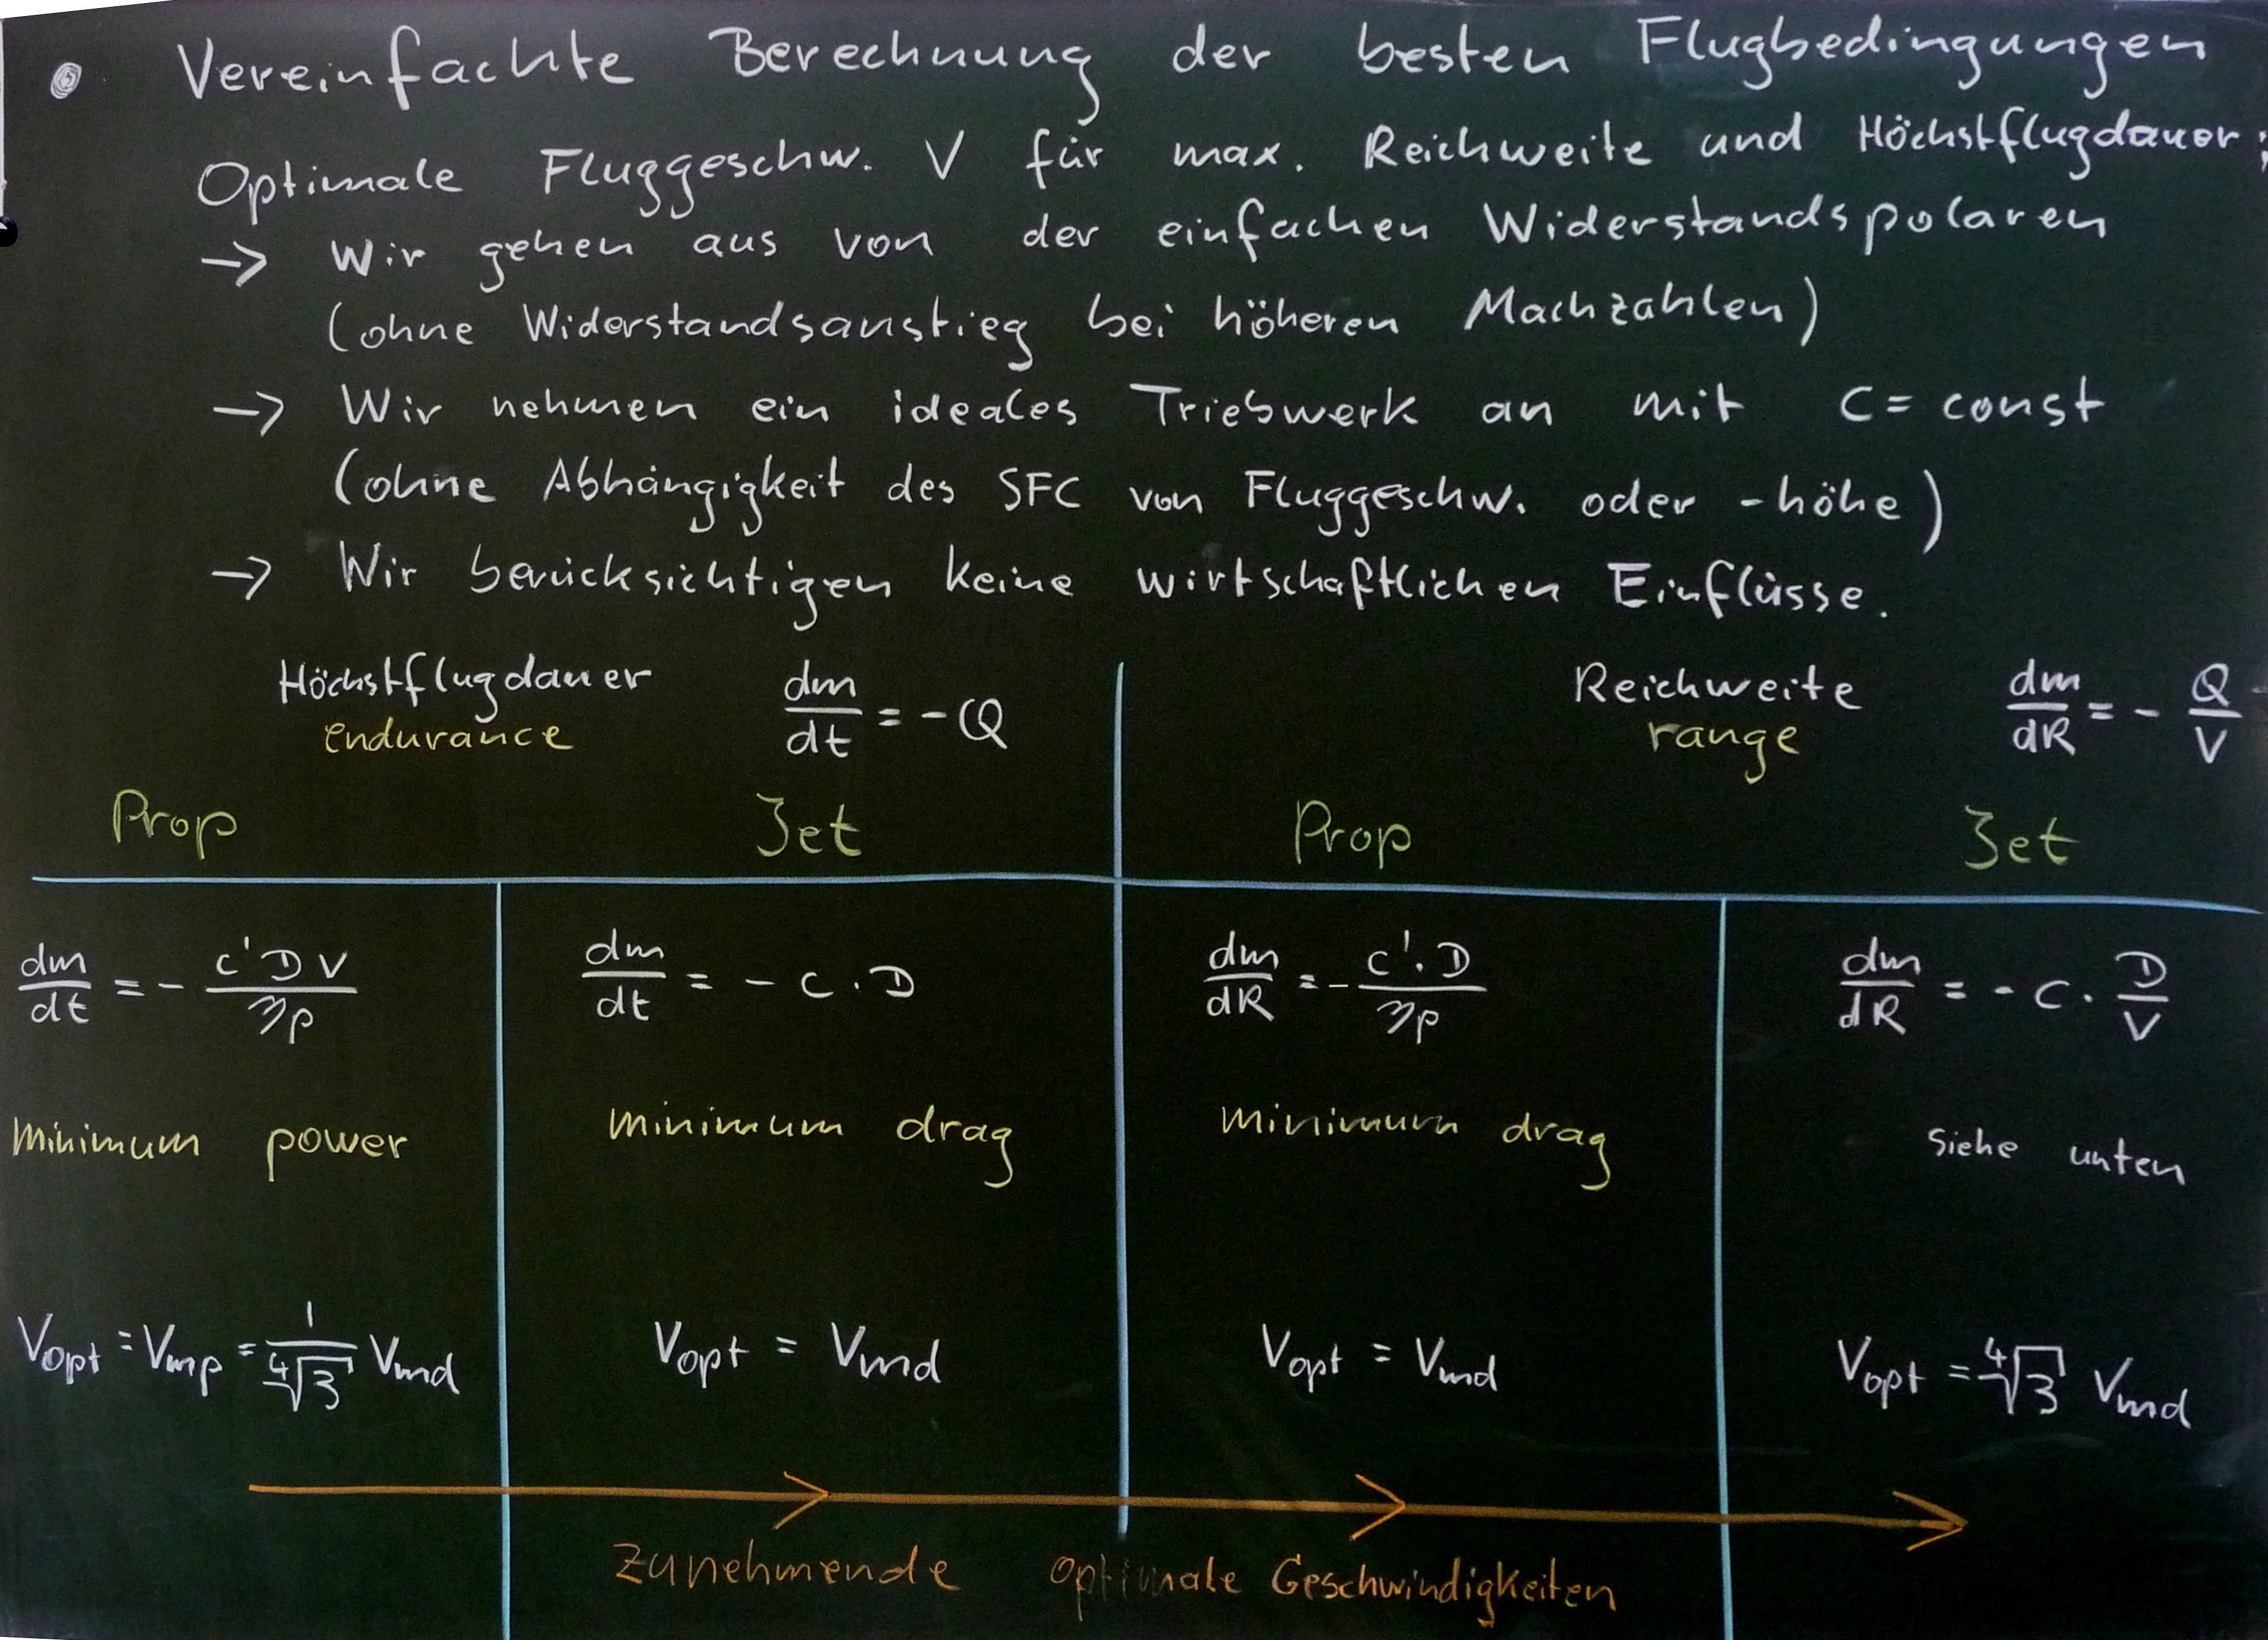 • Vereinfachte Berechnung der besten Flugbedingungen
Optimale Fluggeschw. V für max. Reichweite und Höchstflugdauer;
→ Wir gehen aus von der einfachen Widerstandspolaren
(ohne Widerstandsanstieg bei höheren Machzahlen)
→ Wir nehmen ein ideales Triebwerk an mit c = const
(ohne Abhängigkeit des SFC von Fluggeschw. oder -höhe)
→ Wir berücksichtigen keine wirtschaftlichen Einflüsse.
Höchstflugdauer dm/dt = -Q Reichweite dm/dR = - Q/V
endurance range
Prop Jet Prop Jet
dm/dt = - c'DV/ηp dm/dt = - c · D dm/dR = - c'·D/ηp dm/dR = - c · D/V
minimum power minimum drag minimum drag siehe unten
Vopt = Vmp = 1/∜3 Vmd Vopt = Vmd Vopt = Vmd Vopt = ∜3 Vmd
zunehmende optimale Geschwindigkeiten